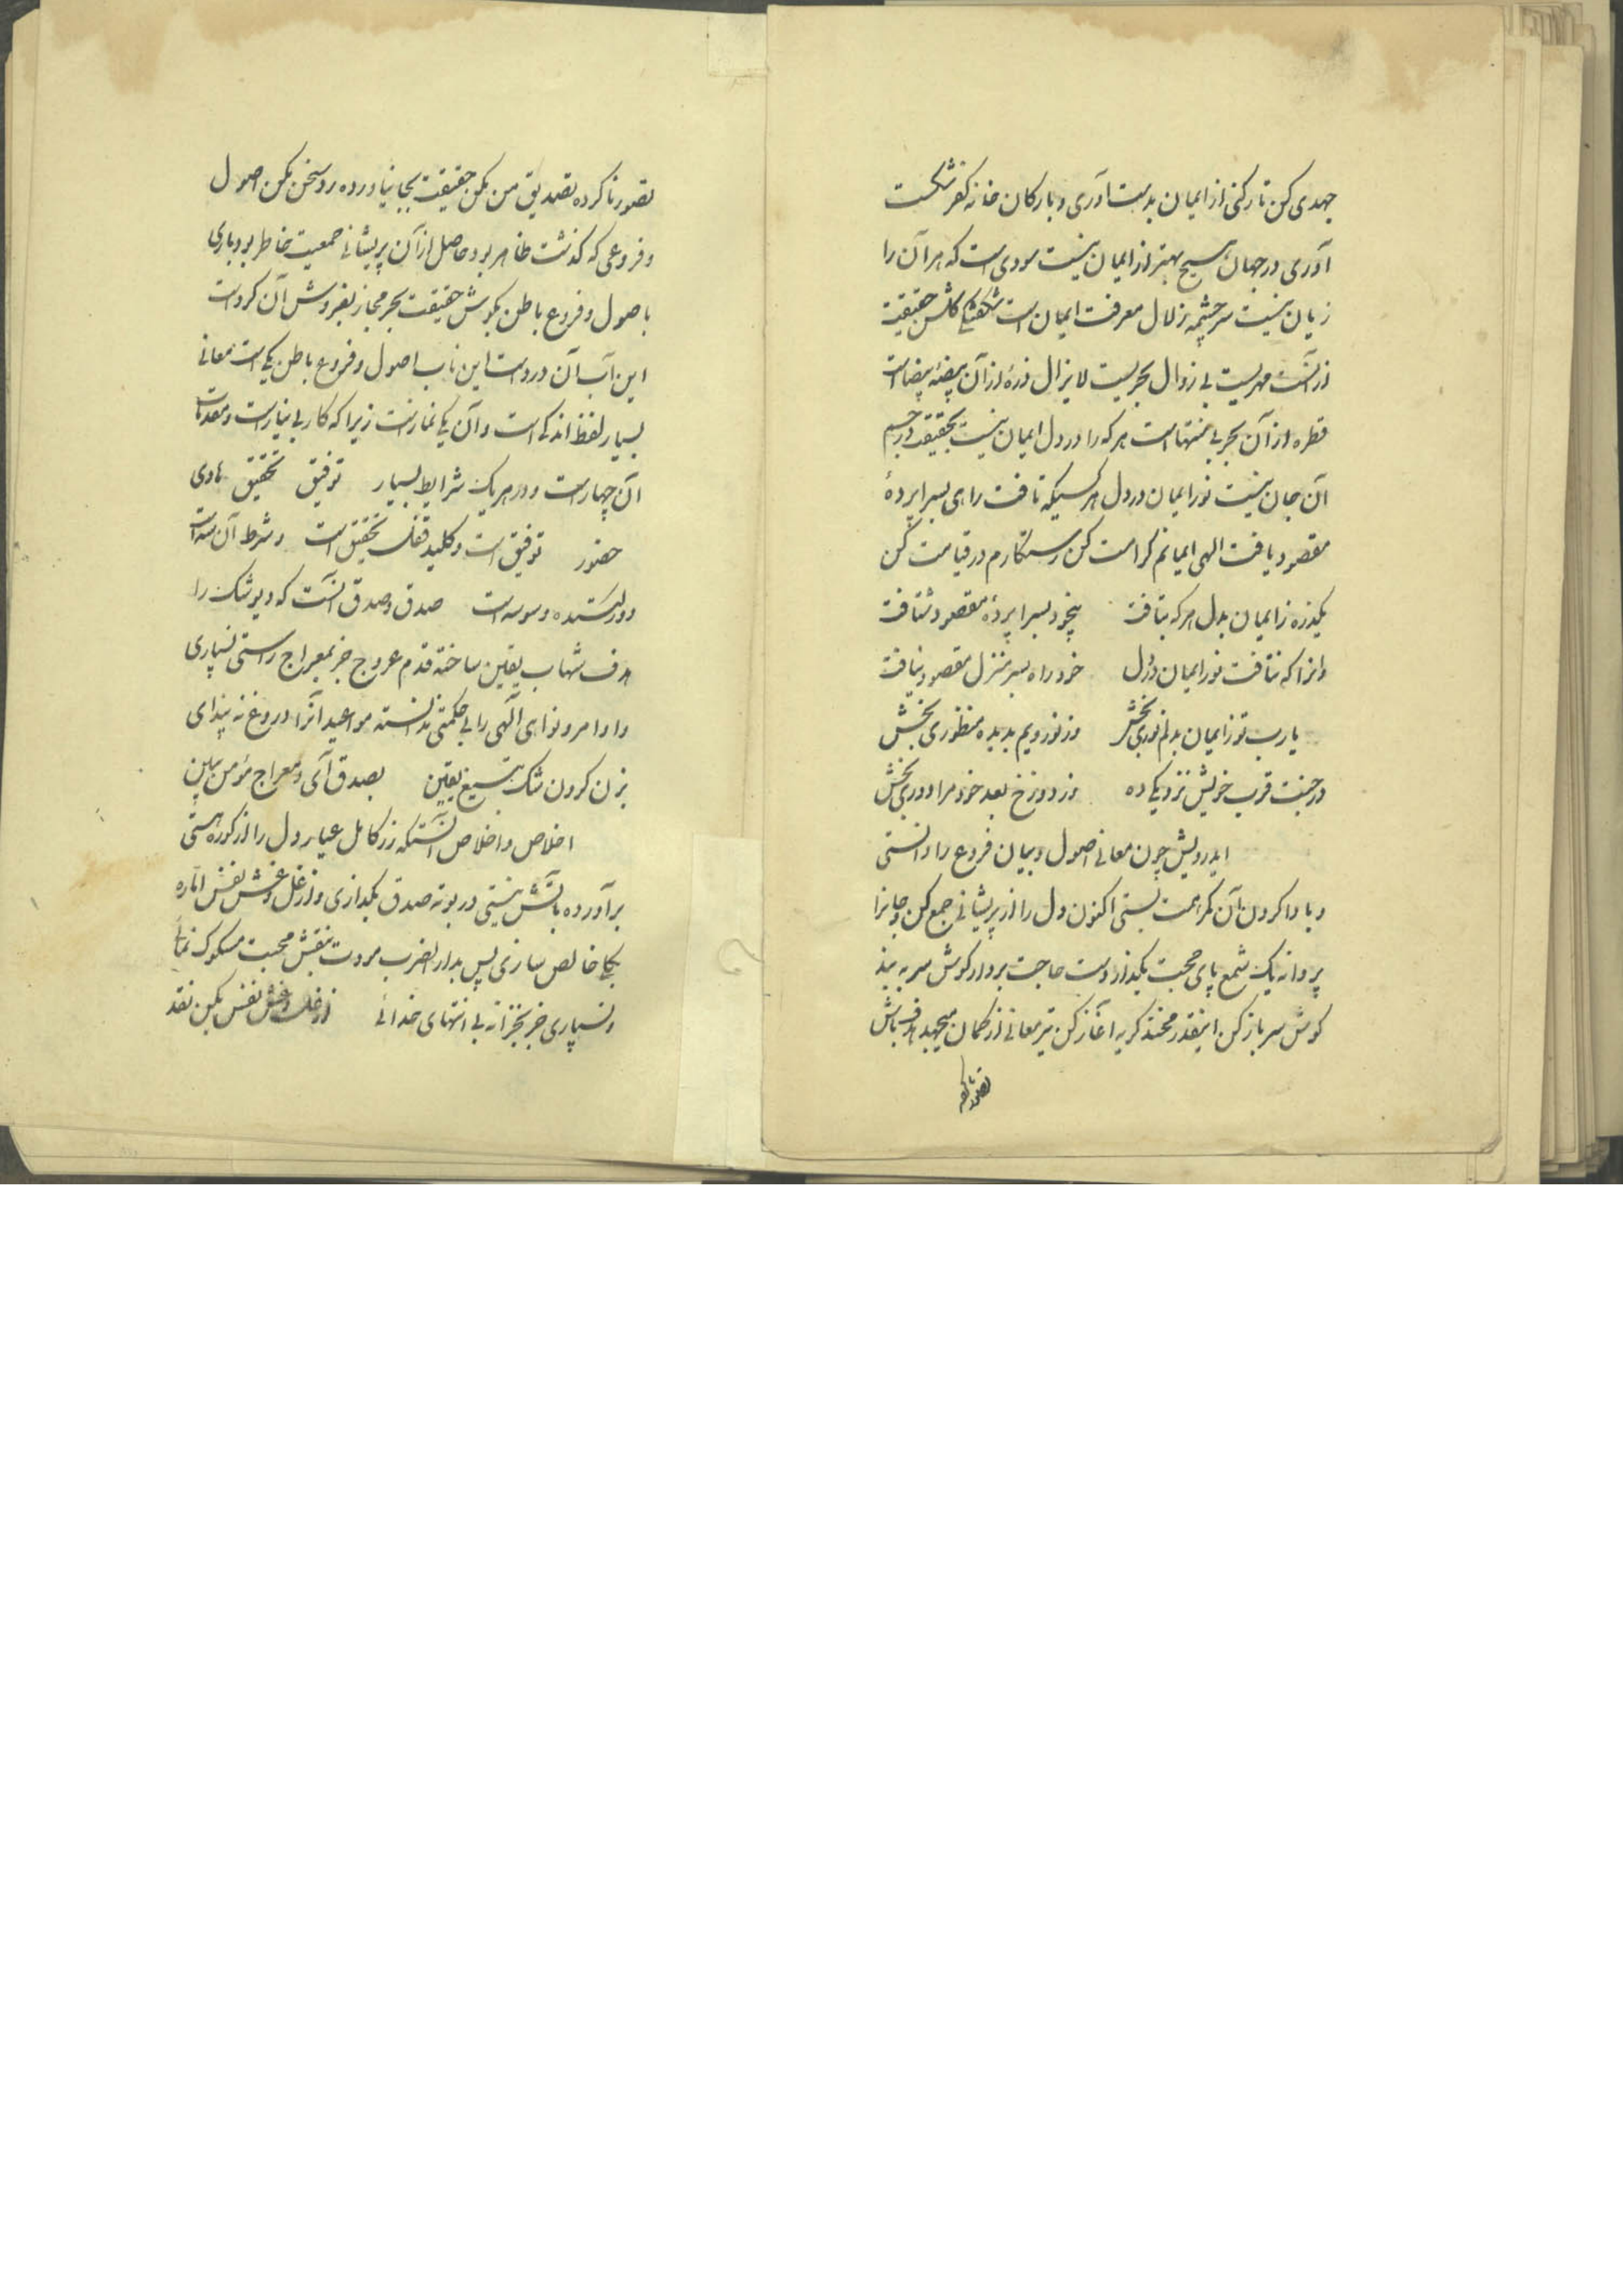 جهدی کن تا رکنی از ایمان بدست آوری و بارکان خانه کفر شکست
آوری در جهان هیچ بهتر از ایمان نیست سودی است که هر آن را
زیان نیست سرچشمه زلال معرفت ایمان است شکفتگی گلشن حقیقت
از آنست مهریست بی زوال بحریست لایزال ذرهٔ از آن بیضهٔ بیضاست
قطره از آن بحر بی منتهاست هر که را در دل ایمان نیست بحقیقت در جسم
آن جان نیست نور ایمان در دل هر کسیکه تافت راهی بسراپردهٔ
مقصود یافت الهی ایمانم کرامت کن رستگارم در قیامت کن
یکذره ز ایمان بدل هر که بتافت بیخود بسراپردهٔ مقصود شتافت
وانرا که نتافت نور ایمان در دل خود راه بسر منزل مقصود نیافت
یارب تو ز ایمان بدلم نوری بخش وز نور رویم بدیده منظوری بخش
در جنت قرب خویش نزدیکی ده وز دوزخ بعد خود مرا دوری بخش
ایدرویش چون معانی اصول و بیان فروع را دانستی
و با دا کردن آن کمر همت بستی اکنون دل را از پریشانی جمع کن و جانرا
پروانه یک شمع پای محبت بگذار دست حاجت بردار گوش سر به بند
گوش سر باز کن اینقدر مخند گریه آغاز کن تیر معانی از کمان میجهد هدف باش
تصور ناکرده
تصور ناکرده تصدیق من مکن حقیقت بجا نیاورده رد سخن مکن اصول
و فروعی که گذشت ظاهر بود حاصل از آن پریشانی جمعیت خاطر بود باری
باصول و فروع باطن بکوش حقیقت بخر مجاز بفروش آن گرد است
این آب آن درد است این ناب اصول و فروع باطن یکی است معانی
بسیار لفظ اندکی است و آن یکی نماز است زیرا که کار بی نیاز است و مقدمات
آن چهار است و در هر یک شرایط بسیار توفیق تحقیق هادی
حضور توفیق است و کلید قفل تحقیق است و شرط آن سه است
دور کننده وسوسه است صدق و صدق آنست که دیو شک را
هدف شهاب یقین ساخته قدم عروج جز بمعراج راستی نسپاری
و اوامر و نواهی آلهی را بی حکمتی ندانسته مواعید آنرا دروغ نه پنداری
بزن گردن شک بتیغ یقین بصدق آی و معراج مؤمن ببین
اخلاص و اخلاص آنستکه زر کامل عیار دل را از کورهٔ هستی
برآورده بآتش نیستی در بوته صدق بگدازی و از غل و غش نفس اماره
بکلی خالص سازی پس بدار الضرب مروت بنقش محبت مسکوک نمائی
و نسپاری جز بخزانه بی انتهای خدائی از غل و غش نفس بکن نقد